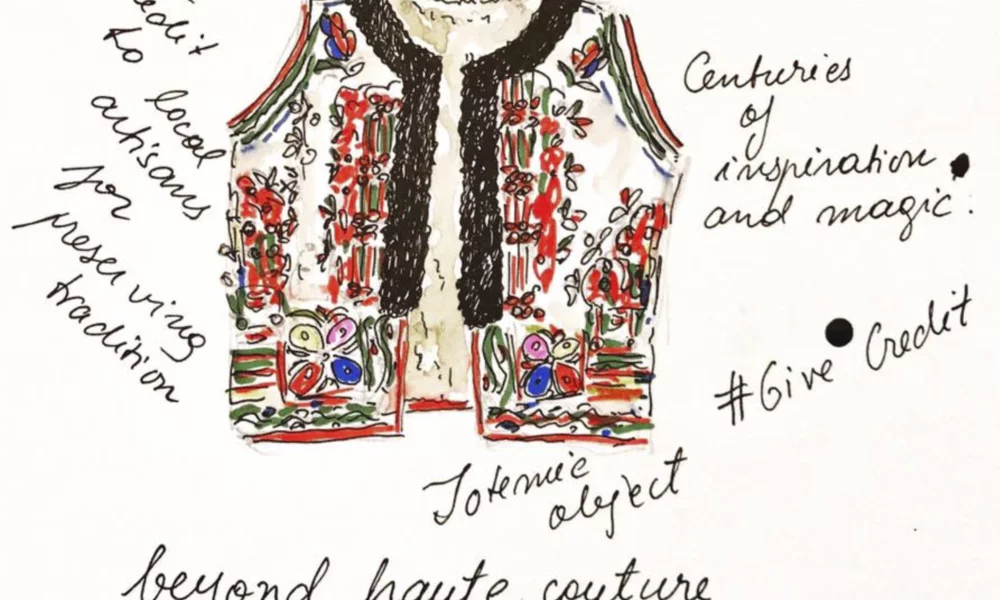 to
local
artisans
for
preserving
tradition
Centuries
of
inspiration
and magic.
#Give Credit
Totemic
object
beyond haute couture